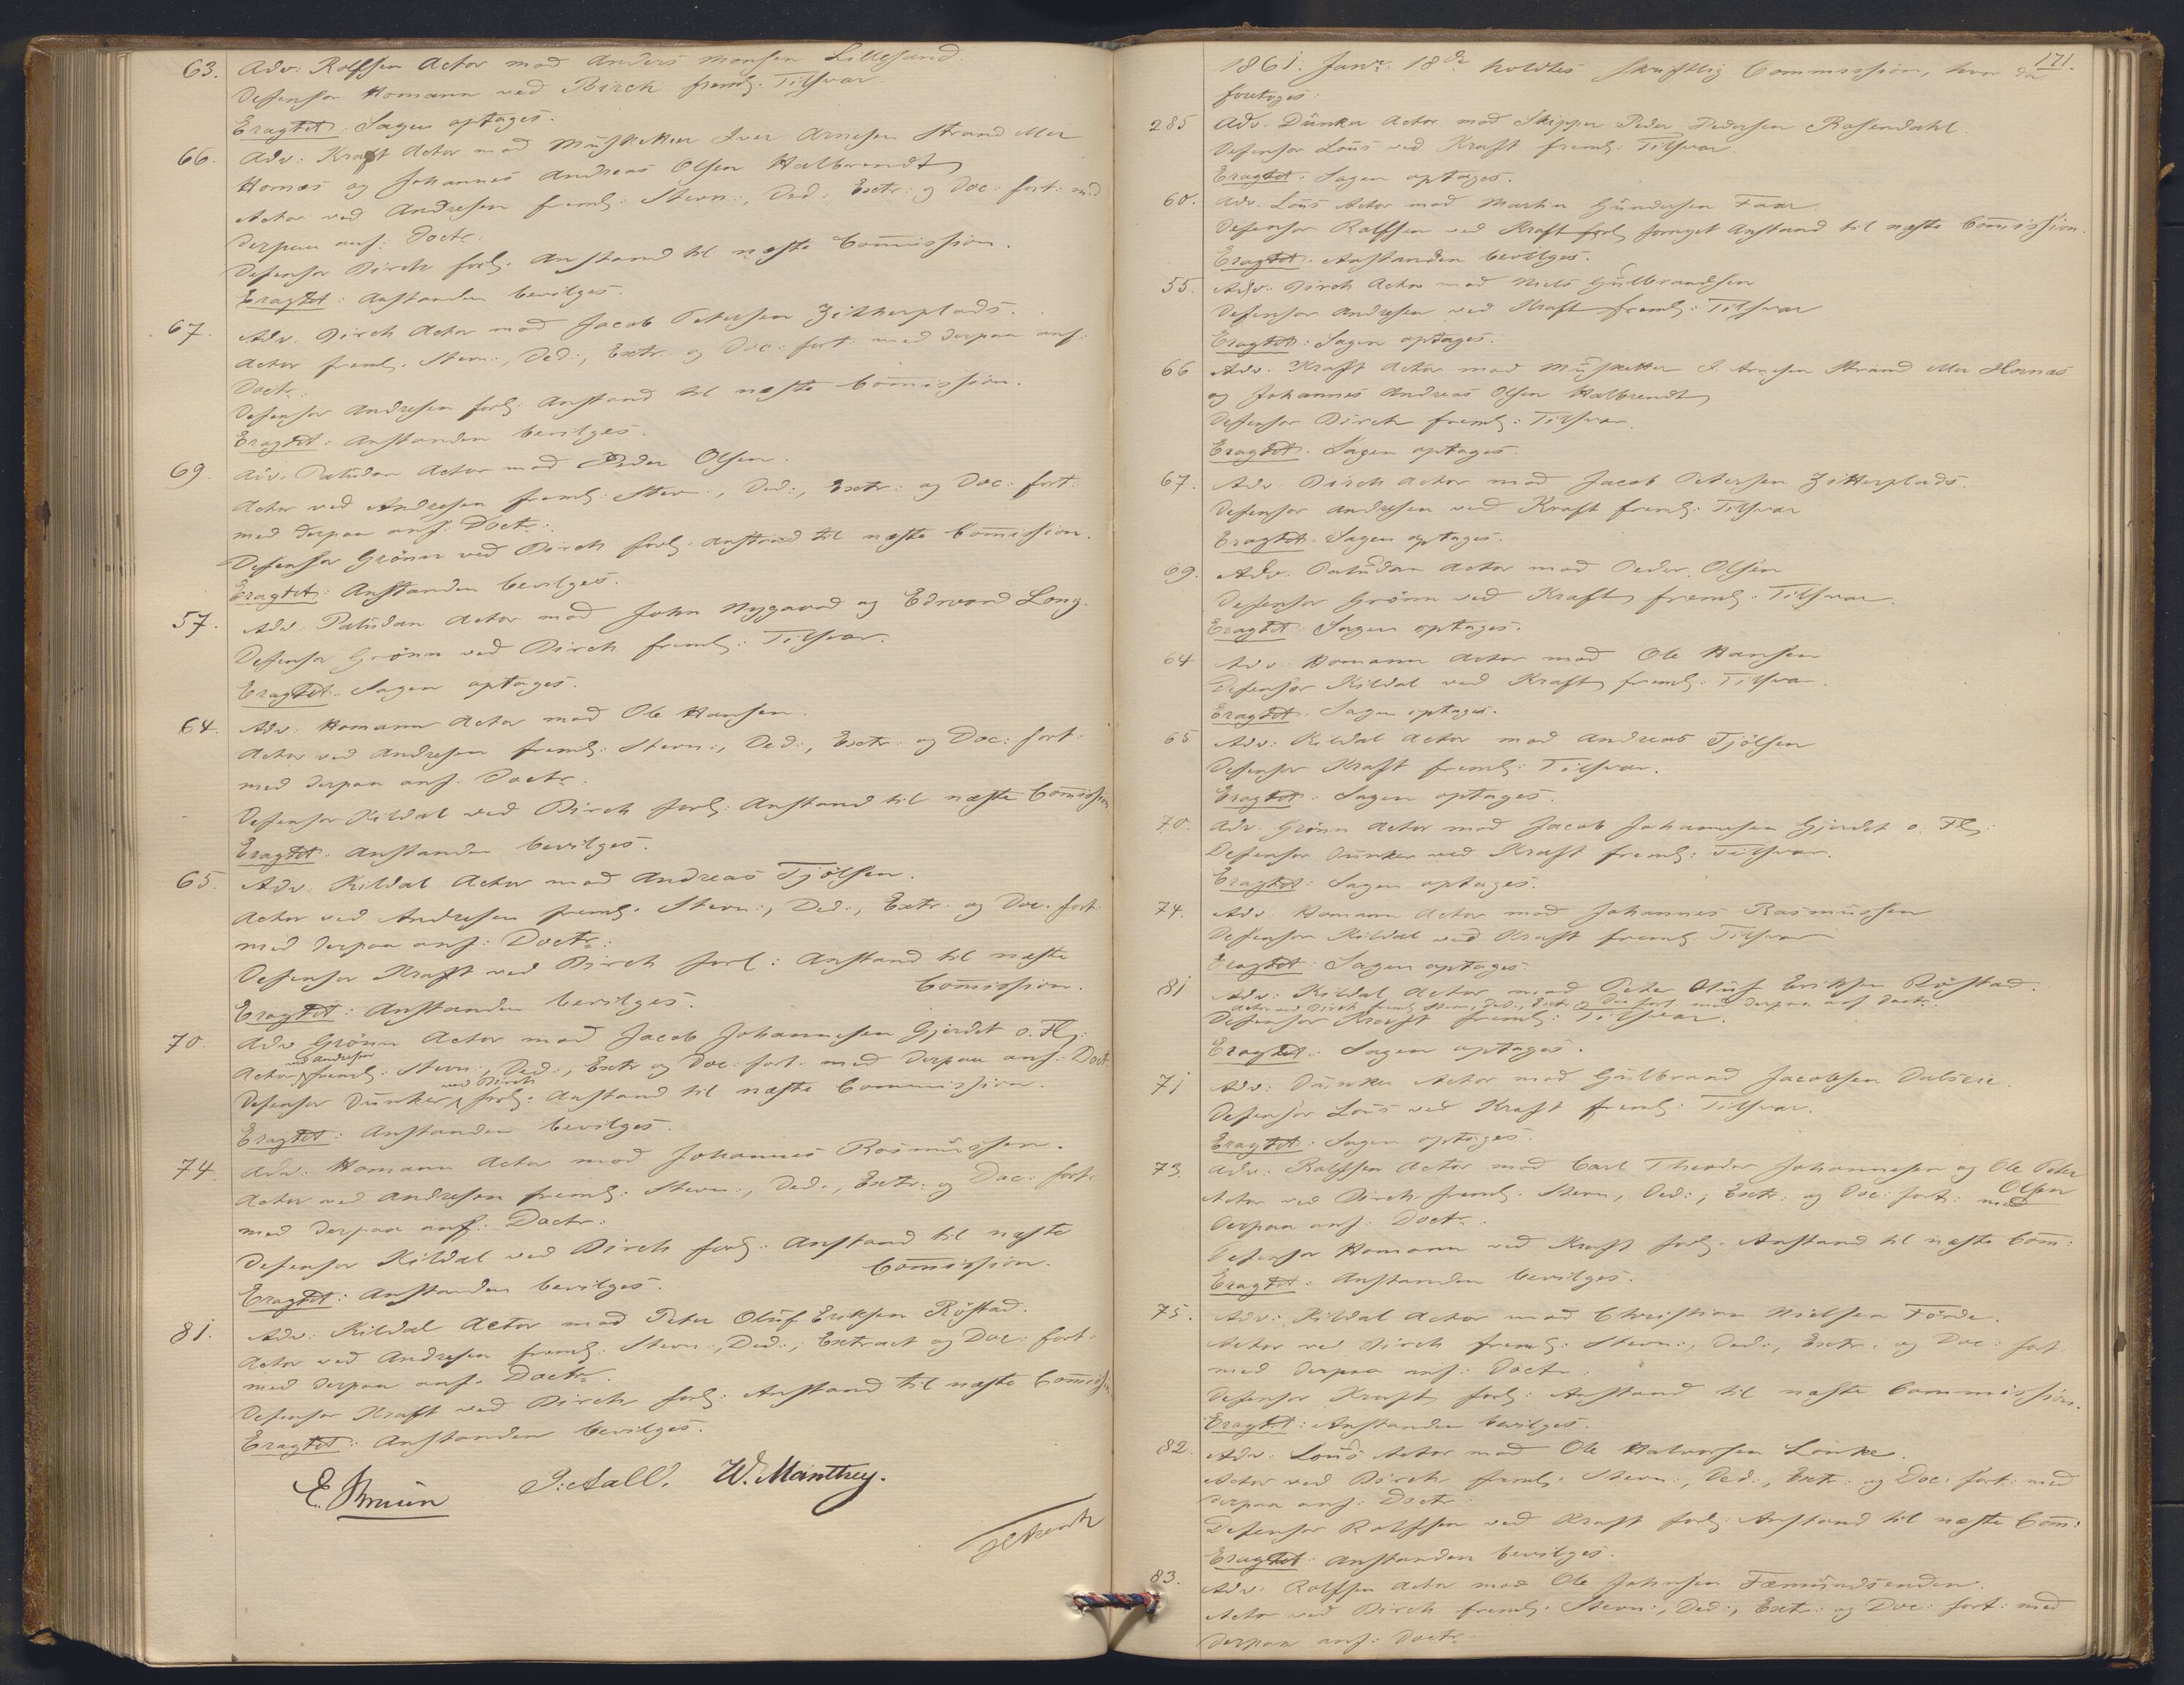 63. Adv: Rolfsen Actor mod Anders Monsen Lillesand.
Defensor Homann ved Birch freml: Tilsvar
Eragtet: Sagen optages.
66. Adv: Kraft Actor mod Musketteer Iver Arnesen Strand eller
Hornæs og Johannes Andreas Olsen Halbrendt
Actor ved Andresen freml: Stevn:, Ded:, Extr: og Doc: fort: med
derpaa anf: Doctr:
Defensor Birch forl: Anstand til næste Commission.
Eragtet: Anstanden bevilges.
67. Adv. Birch Actor mod Jacob Petersen Zitherplads.
Actor freml. Stevn:, Ded:, Extr: og Doc: fort: med derpaa anf:
Doctr.
Defensor Andresen forl: Anstand til næste Commission.
Eragtet: Anstanden bevilges.
69. Adv. Paludan Actor mod Peder Olsen.
Actor ved Andresen freml: Stevn:, Ded:, Extr: og Doc: fort:
med derpaa anf: Doctr:
Defensor Grönn ved Birch forl: Anstand til næste Commission.
Eragtet: Anstanden bevilges.
57. Adv. Paludan Actor mod John Nygaard og Edward Long.
Defensor Grönn ved Birch freml: Tilsvar.
Eragtet: Sagen optages.
64. Adv. Homann Actor mod Ole Hansen.
Actor ved Andresen freml: Stevn:, Ded:, Extr: og Doc: fort:
med derpaa anf: Doctr.
Defensor Kildal ved Birch forl: Anstand til næste Commission
Eragtet: Anstanden bevilges.
65. Adv. Kildal Actor mod Andreas Tjölsen.
Actor ved Andresen freml: Stevn:, Ded:, Extr: og Doc: fort:
med derpaa anf: Doctr:
Defensor Kraft ved Birch forl: Anstand til næste
Commission.
Eragtet: Anstanden bevilges.
70. Adv Grönn Actor mod Jacob Johannesen Gjerdet o. Fl:
ved Andresen
Actor freml: Stevn:, Ded:, Extr og Doc: fort: med derpaa anf: Doctr:
ved Birch
Defensor Dunker forl: Anstand til næste Commission.
Eragtet: Anstanden bevilges.
74. Adv: Homann Actor mod Johannes Rasmussen.
Actor ved Andresen freml: Stevn:, Ded:, Extr: og Doc: fort:
med derpaa anf: Doctr:
Defensor Kildal ved Birch forl: Anstand til næste
Commission.
Eragtet: Anstanden bevilges.
81. Adv: Kildal Actor mod Peter Oluf Eriksen Röstad.
Actor ved Andresen freml: Stevn:, Ded:, Extract og Doc: fort:
med derpaa anf. Doctr.
Defensor Kraft ved Birch forl: Anstand til næste Commission
Eragtet: Anstanden bevilges.
E. Bruun P. Aall. W. Manthey.
171.
1861. Janr: 18de holdtes skriftlig Commission, hvor da
foretoges:
285 Adv. Dunker Actor mod Skipper Peder Pedersen Rosendahl.
Defensor Lous ved Kraft freml: Tilsvar.
Eragtet: Sagen optages.
60. Adv. Lous Actor mod Martin Gundersen Faar
Defensor Rolfsen ved Kraft forl: fornyet Anstand til næste Commission.
Eragtet: Anstanden bevilges.
55. Adv: Birch Actor mod Niels Gulbrandsen
Defensor Andresen ved Kraft freml: Tilsvar
Eragtet: Sagen optages.
66 Adv. Kraft Actor mod Musketteer I. Arnesen Strand eller Hornæs
og Johannes Andreas Olsen Halbrendt
Defensor Birch freml: Tilsvar.
Eragtet: Sagen optages.
67. Adv: Birch Actor mod Jacob Petersen Zitterplads.
Defensor Andresen ved Kraft freml: Tilsvar
Eragtet: Sagen optages.
69. Adv. Paludan Actor mod Peder Olsen
Defensor Grönn ved Kraft freml: Tilsvar.
Eragtet: Sagen optages.
64 Adv. Homann Actor mod Ole Hansen
Defensor Kildal ved Kraft freml: Tilsvar.
Eragtet: Sagen optages.
65 Adv: Kildal Actor mod Andreas Tjölsen
Defensor Kraft freml: Tilsvar.
Eragtet: Sagen optages.
70. Adv. Grönn Actor mod Jacob Johannesen Gjerdet o. Fl:
Defensor Dunker ved Kraft freml: Tilsvar.
Eragtet: Sagen optages.
74. Adv. Homann Actor mod Johannes Rasmussen
Defensor Kildal ved Kraft freml: Tilsvar
Eragtet: Sagen optages.
81 Adv: Kildal Actor mod Peter Oluf Eriksen Röstad.
Actor ved Birch freml: Stevn:, Ded:, Extr: og Doc fort: med derpaa anf Doctr:
Defensor Kraft freml: Tilsvar.
Eragtet: Sagen optages.
71 Adv: Dunker Actor mod Gulbrand Jacobsen Dalseie.
Defensor Lous ved Kraft freml: Tilsvar.
Eragtet: Sagen optages.
73. Adv: Rolfsen Actor mod Carl Theodor Johannesen og Ole Peter
Olsen
Actor ved Birch freml: Stevn, Ded:, Extr: og Doc: fort: med
derpaa anf: Doctr.
Defensor Homann ved Kraft forl: Anstand til næste Com:
Eragtet: Anstanden bevilges.
75. Adv: Kildal Actor mod Christian Nielsen Förde.
Actor ved Birch freml: Stevn:, Ded:, Extr: og Doc: fort.
med derpaa anf: Doctr.
Defensor Kraft forl: Anstand til næste Commission.
Eragtet: Anstanden bevilges.
82. Adv. Lous Actor mod Ole Halvorsen Lönke.
Actor ved Birch freml: Stevn:, Ded:, Extr: og Doc: fort: med
derpaa anf: Doctr:
Defensor Rolfsen ved Kraft forl: Anstand til næste Com:
Eragtet: Anstanden bevilges.
83. Adv: Rolfsen Actor mod Ole Johnsen Fæmundsenden.
Actor ved Birch freml: Stevn:, Ded:, Extr: og Doc: fort: med
derpaa anf: Doctr: